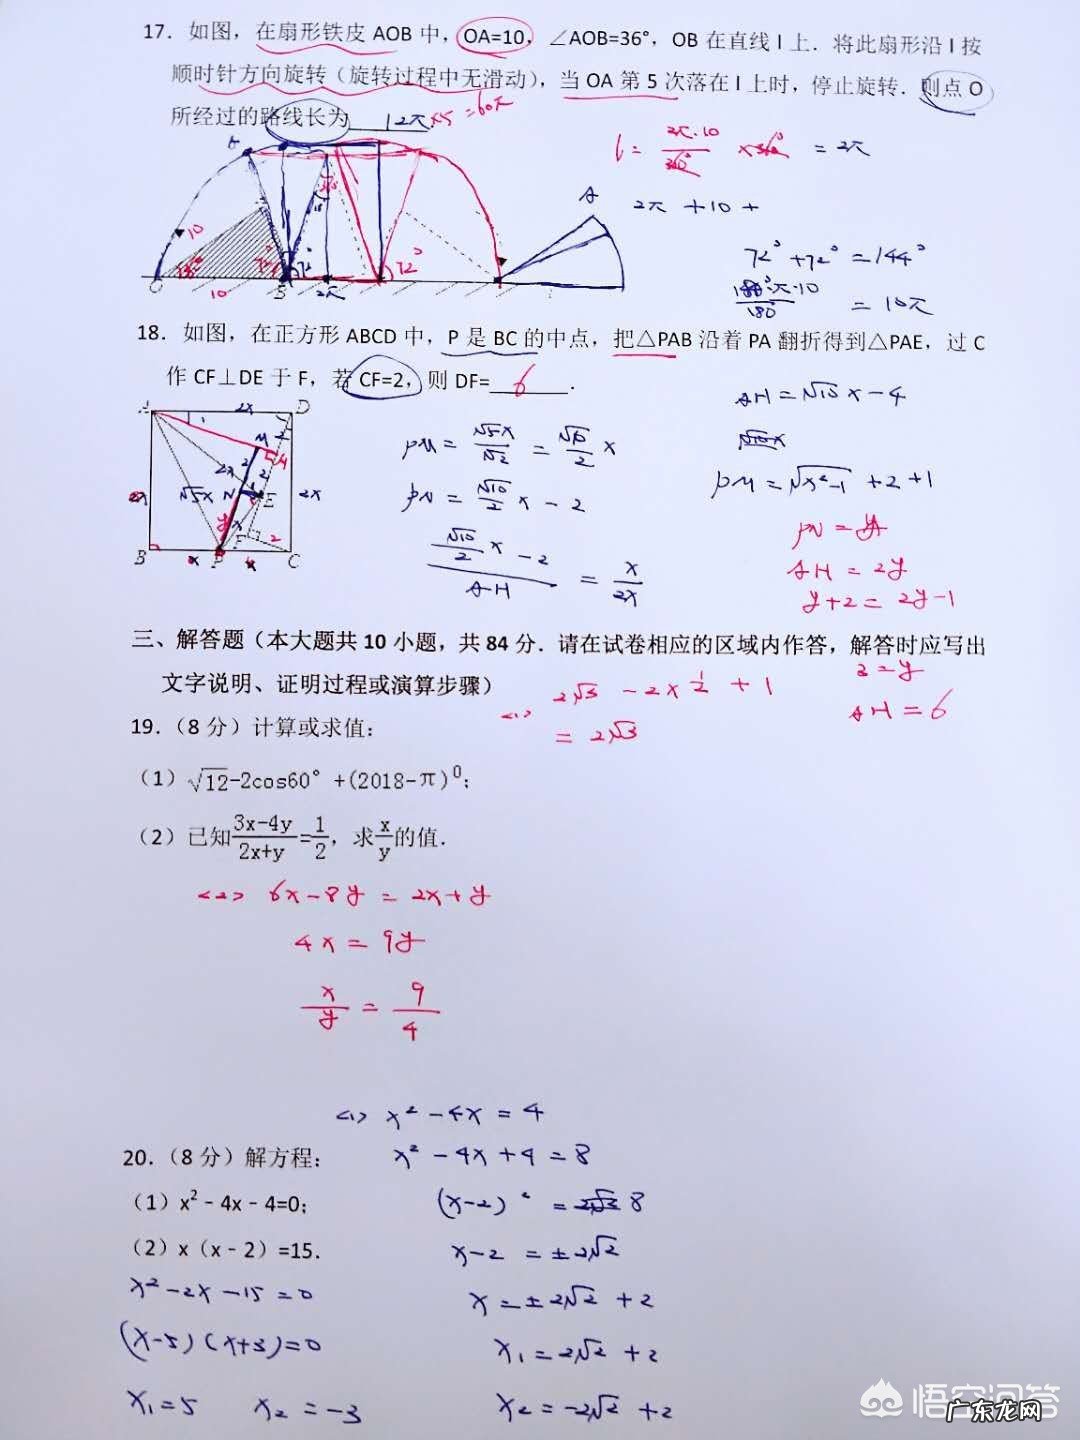 17. 如图，在扇形铁皮 AOB 中，OA=10，∠AOB=36°，OB 在直线 l 上．将此扇形沿 l 按
顺时针方向旋转（旋转过程中无滑动），当 OA 第 5 次落在 l 上时，停止旋转．则点 O
所经过的路线长为 12π ×5 = 60π
l = 2π·10/360° × 36° = 2π
2π + 10 +
72° + 72° = 144°
180°π·10/180° = 10π
A
10
72°
72°
72°
10
B
2π
18. 如图，在正方形 ABCD 中，P 是 BC 的中点，把△PAB 沿着 PA 翻折得到△PAE，过 C
作 CF⊥DE 于 F，若 CF=2，则 DF= 6 ．
A 2x D
M
2x
√5x N E 2x
y
F 2
B x P x C
PM = √5x/√2 = √10/2 x
PN = √10/2 x − 2
(√10/2 x − 2)/AH = x/2x
AH = √10 x − 4
PM = √(x²−1) + 2 + 1
PN = y
AH = 2y
y+2 = 2y−1
3 = y
AH = 6
三、解答题（本大题共 10 小题，共 84 分．请在试卷相应的区域内作答，解答时应写出
文字说明、证明过程或演算步骤）
<1> 2√3 − 2×1/2 + 1
= 2√3
19．（8 分）计算或求值：
（1）√12-2cos60° +(2018-π)⁰；
（2）已知(3x-4y)/(2x+y)=1/2，求x/y的值．
<2> 6x−8y = 2x+y
4x = 9y
x/y = 9/4
<1> x² − 4x = 4
20．（8 分）解方程：
x² − 4x + 4 = 8
（1）x²﹣4x﹣4=0；
(x−2)² = 8
（2）x（x﹣2）=15．
x−2 = ±2√2
x² − 2x − 15 = 0
x = ±2√2 + 2
(x−5)(x+3) = 0
x₁ = 2√2 + 2
x₁ = 5 x₂ = −3
x₂ = −2√2 + 2
悟空问答
广东龙网